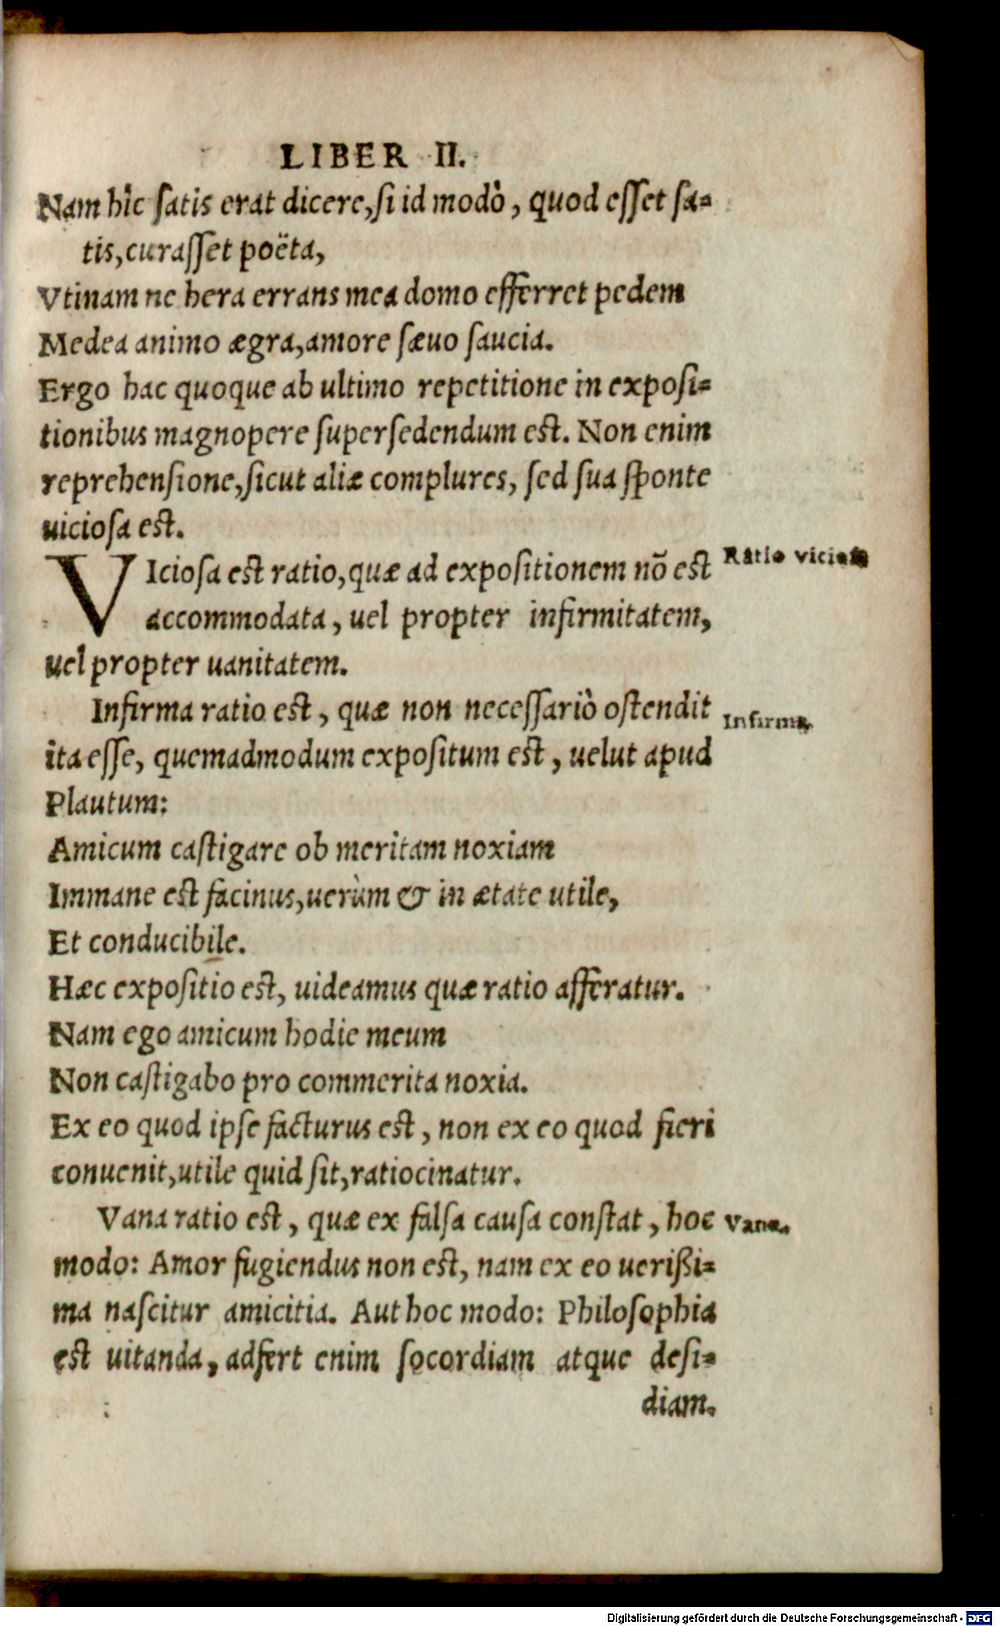 LIBER II.
Nam hîc satis erat dicere, si id modò, quod esset sa=
tis, curasset poëta,
Vtinam ne hera errans mea domo efferret pedem
Medea animo ægra, amore sæuo saucia.
Ergo hac quoque ab ultimo repetitione in exposi=
tionibus magnopere supersedendum est. Non enim
reprehensione, sicut aliæ complures, sed sua sponte
uiciosa est.
VIciosa est ratio, quæ ad expositionem nō est
Ratio viciosa
accommodata, uel propter infirmitatem,
uel propter uanitatem.
Infirma ratio est, quæ non necessariò ostendit
Infirma.
ita esse, quemadmodum expositum est, uelut apud
Plautum:
Amicum castigare ob meritam noxiam
Immane est facinus, uerùm & in ætate utile,
Et conducibile.
Hæc expositio est, uideamus quæ ratio afferatur.
Nam ego amicum hodie meum
Non castigabo pro commerita noxia.
Ex eo quod ipse facturus est, non ex eo quod fieri
conuenit, utile quid sit, ratiocinatur.
Vana ratio est, quæ ex falsa causa constat, hoc
Vana.
modo: Amor fugiendus non est, nam ex eo uerißi=
ma nascitur amicitia. Aut hoc modo: Philosophia
est uitanda, adfert enim socordiam atque desi=
diam.
Digitalisierung gefördert durch die Deutsche Forschungsgemeinschaft - DFG